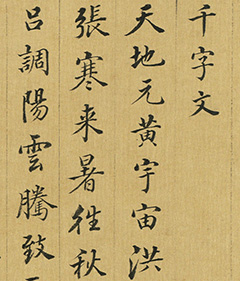 千字文
天地元黃宇宙洪
張寒来暑徃秋
呂調陽雲騰致